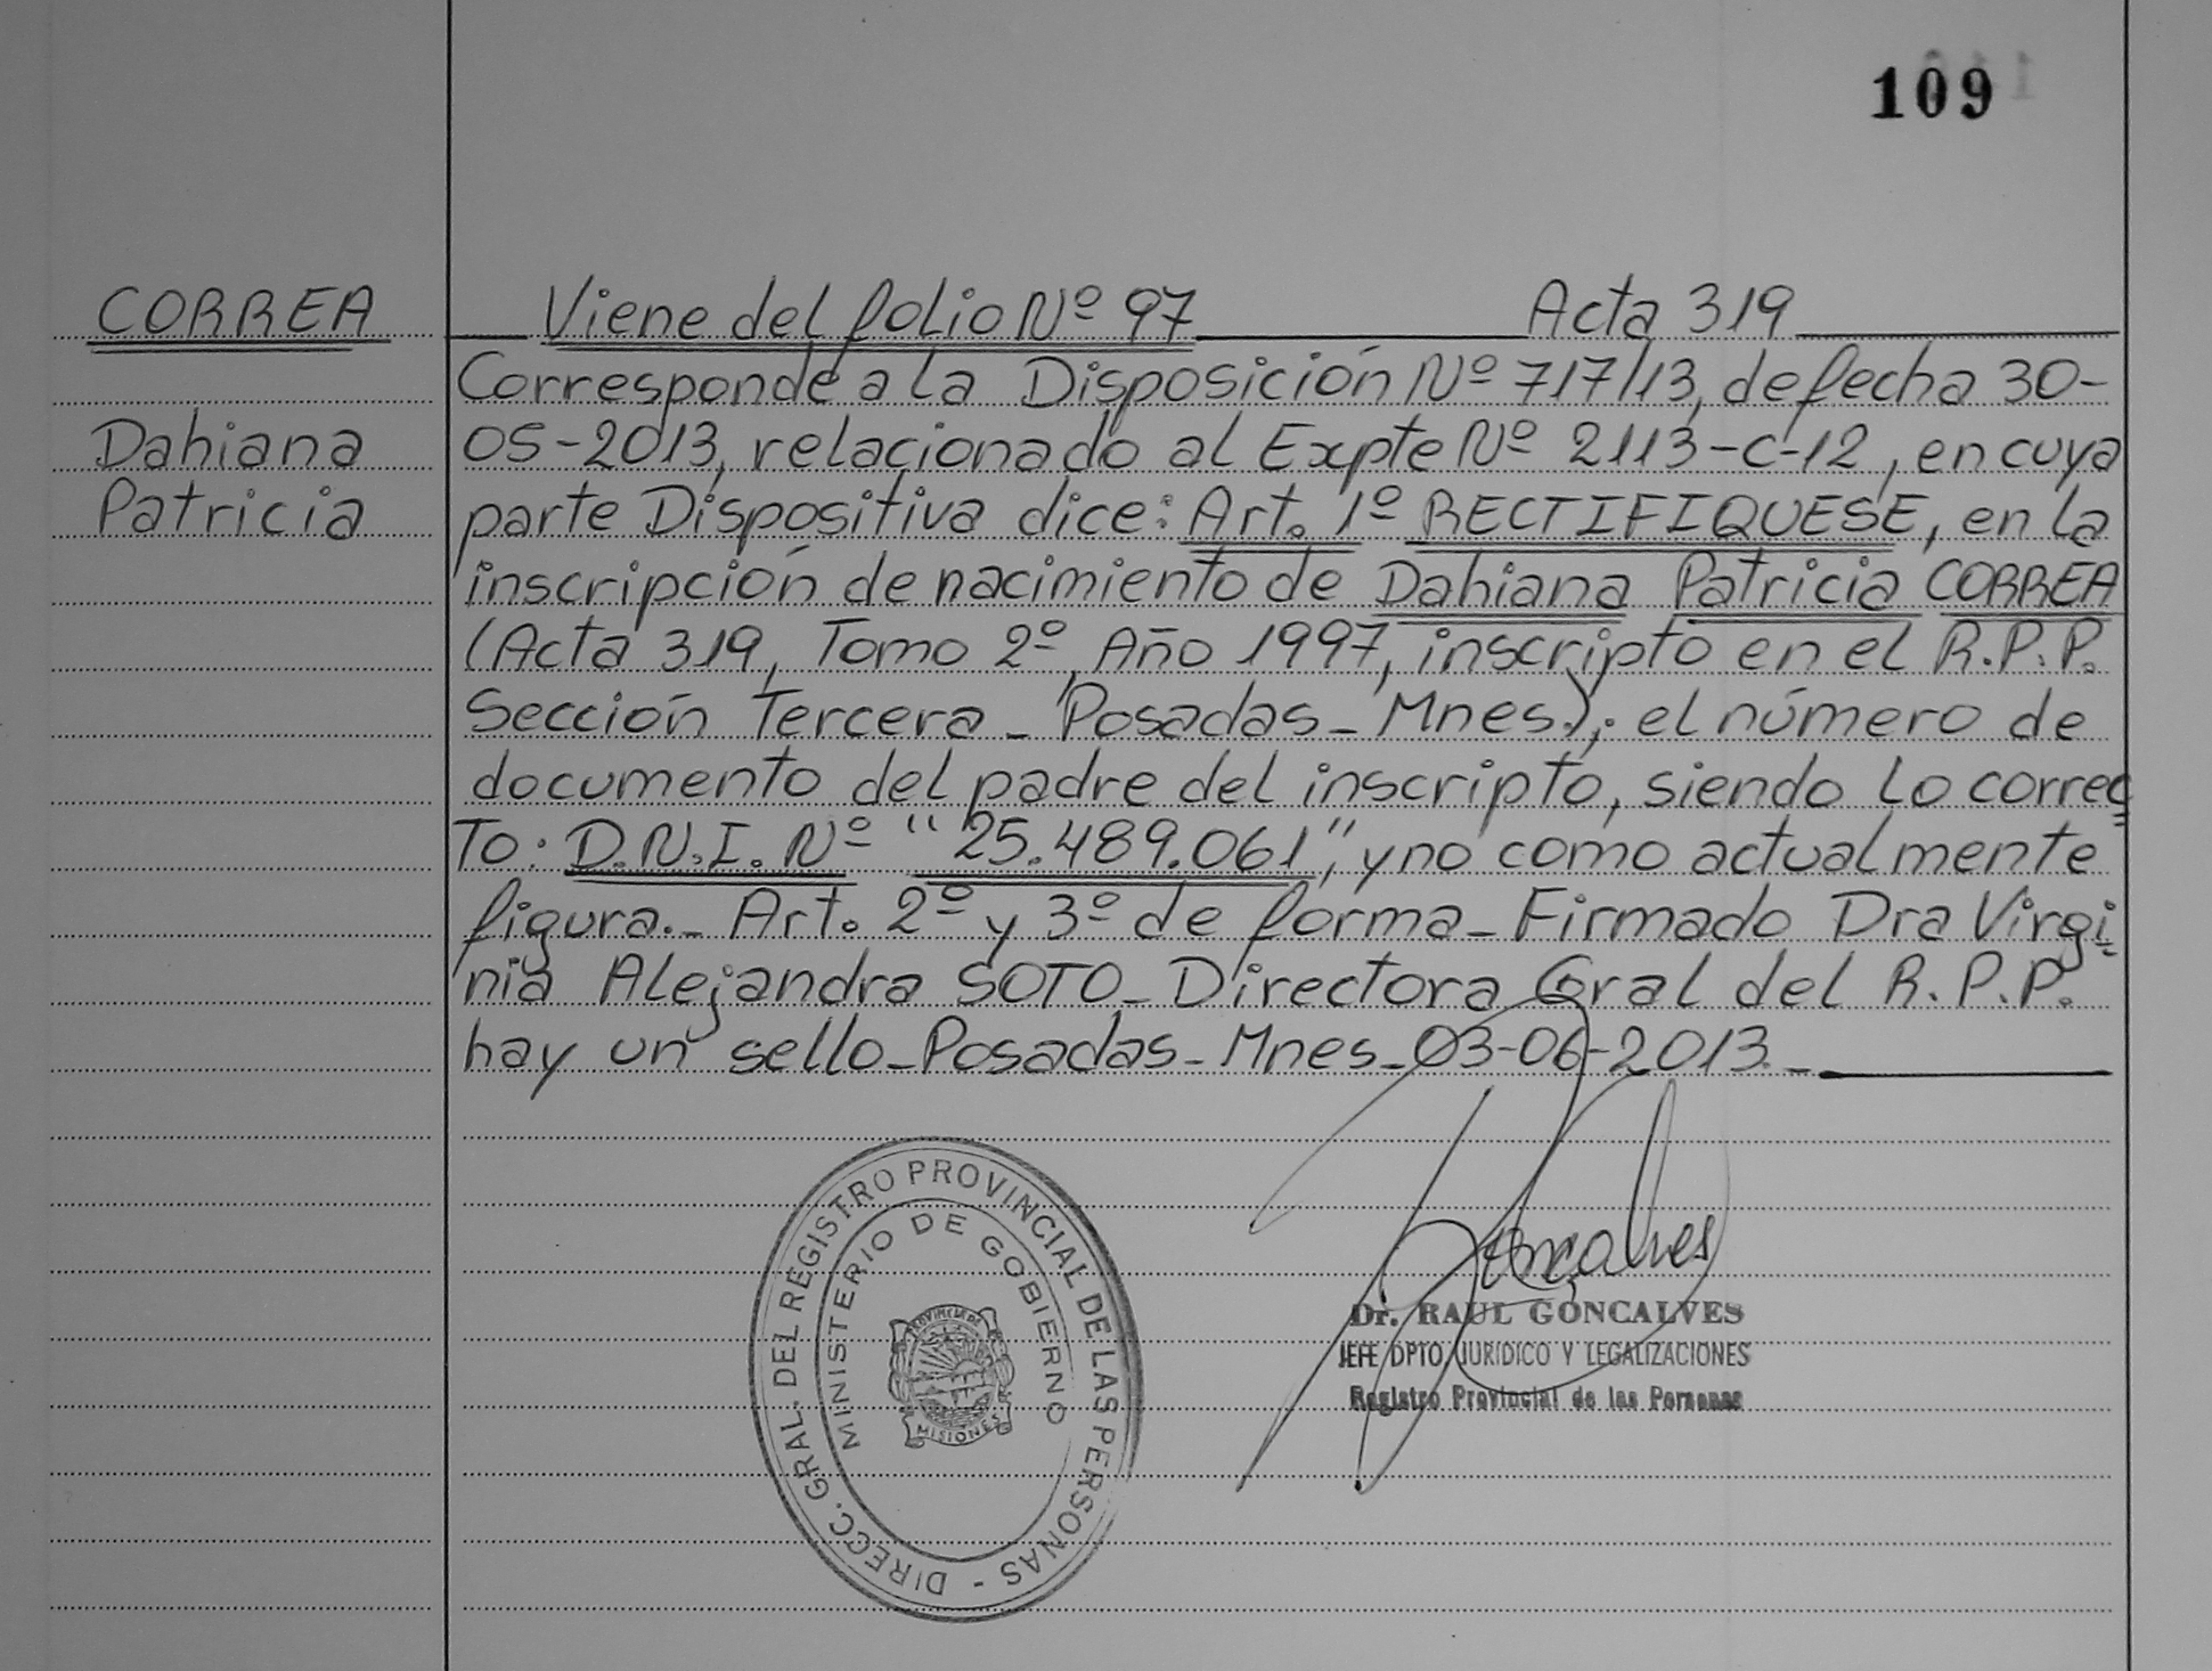 109
CORREA
Dahiana
Patricia
Viene del folio Nº 97 Acta 319
Corresponde a la Disposición Nº 717/13, de fecha 30-
05-2013, relacionado al Expte Nº 2113-C-12, en cuya
parte Dispositiva dice: Art. 1º RECTIFIQUESE, en la
inscripción de nacimiento de Dahiana Patricia CORREA
(Acta 319, Tomo 2º, Año 1997, inscripto en el R.P.P.
Sección Tercera - Posadas - Mnes.); el número de
documento del padre del inscripto, siendo lo correc
to: D.N.I. Nº "25.489.061", y no como actualmente
figura.- Art. 2º y 3º de forma - Firmado Dra Virgi
nia Alejandra SOTO - Directora Gral del R.P.P.
hay un sello - Posadas - Mnes - 03-06-2013.-
DIRECC. GRAL. DEL REGISTRO PROVINCIAL DE LAS PERSONAS -
MINISTERIO DE GOBIERNO
PROVINCIA DE
MISIONES
Goncalves
Dr. RAUL GONCALVES
JEFE DPTO. JURIDICO Y LEGALIZACIONES
Registro Provincial de las Personas